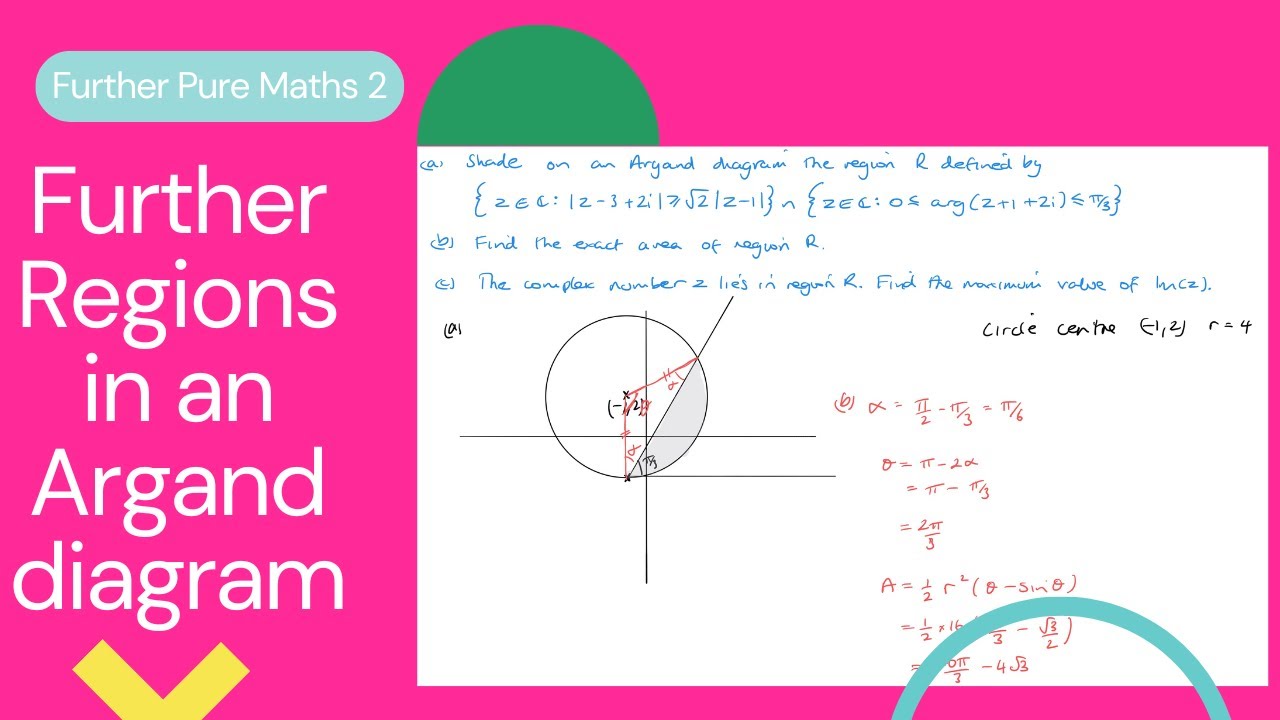 Further Pure Maths 2
Further
Regions
in an
Argand
diagram
(a) Shade on an Argand diagram the region R defined by
{z ∈ ℂ: |z-3+2i| ≥ √2|z-1|} ∩ {z ∈ ℂ: 0 ≤ arg(z+1+2i) ≤ π/3}
(b) Find the exact area of region R.
(c) The complex number z lies in region R. Find the maximum value of Im(z).
(a)
circle centre (-1,2) r = 4
(-1,2)
α
θ
α
π/3
(b) α = π/2 - π/3 = π/6
θ = π - 2α
= π - π/3
= 2π/3
A = 1/2 r² (θ - sinθ)
= 1/2 × 16 ( /3 - √3/2)
= π/3 - 4√3